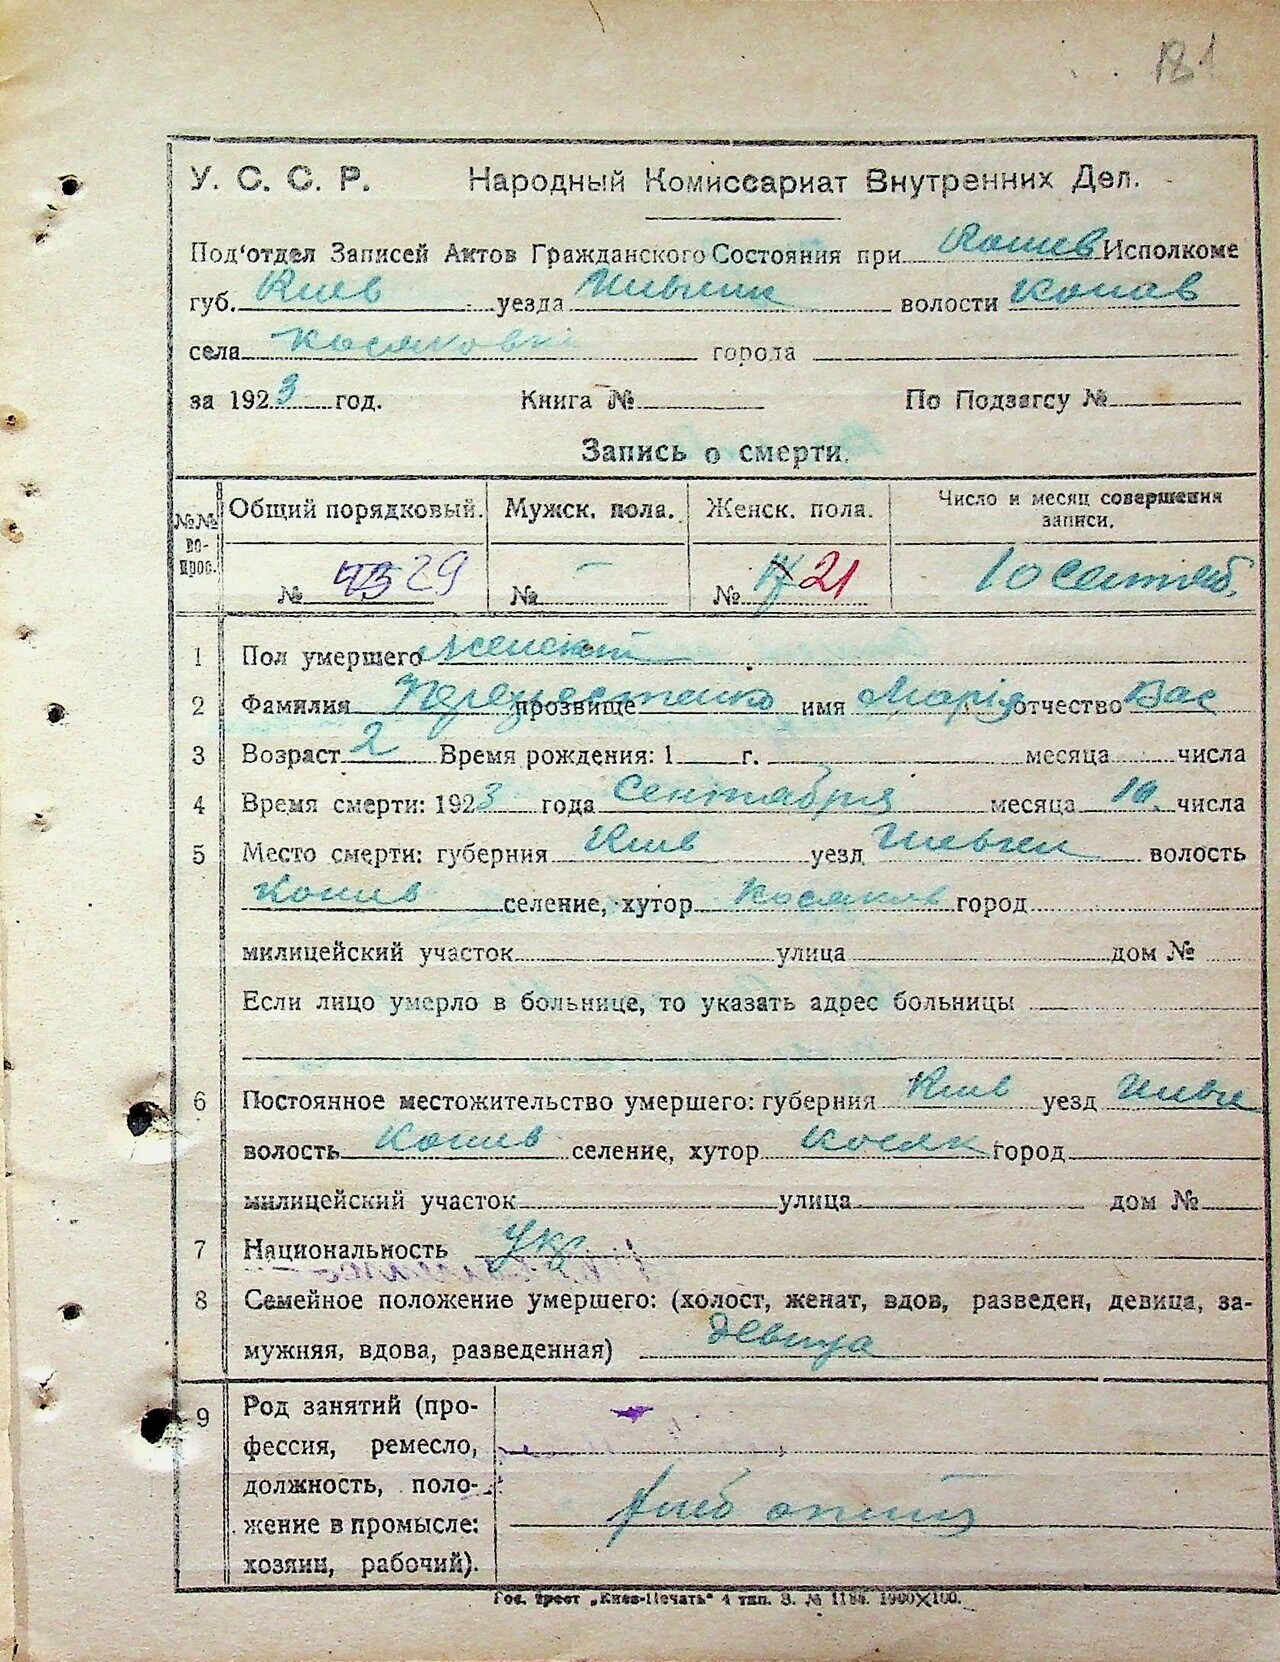 181
У. С. С. Р. Народный Комиссариат Внутренних Дел.
Под'отдел Записей Актов Гражданского Состояния при Кошев Исполкоме
губ. Киев уезда волости Кошев
села Косяковки города
за 1923 год. Книга № По Подзагсу №
Запись о смерти.
№№ вопрос. Общий порядковый. Мужск. пола. Женск. пола. Число и месяц совершения записи.
№ 29 № — № 21 10 сентяб.
1 Пол умершего Женский
2 Фамилия прозвище имя Марія отчество Вас
3 Возраст 2 Время рождения: 1 г. месяца числа
4 Время смерти: 1923 года Сентября месяца 10. числа
5 Место смерти: губерния Киев уезд волость
Кошив селение, хутор Косяков город
милицейский участок улица дом №
Если лицо умерло в больнице, то указать адрес больницы
6 Постоянное местожительство умершего: губерния Киев уезд
волость Кошив селение, хутор Косяк город
милицейский участок улица дом №
7 Национальность Укр
8 Семейное положение умершего: (холост, женат, вдов, разведен, девица, за-
мужняя, вдова, разведенная) девица
9 Род занятий (про-
фессия, ремесло,
должность, поло-
жение в промысле:
хозяин, рабочий).
Гос. трест „Киев-Печать" 4 тип. З. № 1184. 1000×100.